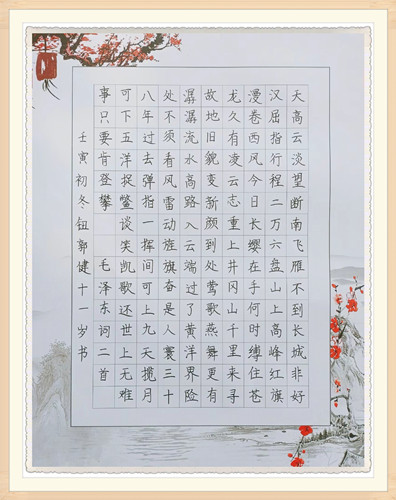 天高云淡望断南飞雁不到长城非好
汉屈指行程二万六盘山上高峰红旗
漫卷西风今日长缨在手何时缚住苍
龙久有凌云志重上井冈山千里来寻
故地旧貌变新颜到处莺歌燕舞更有
潺潺流水高路入云端过了黄洋界险
处不须看风雷动旌旗奋是人寰三十
八年过去弹指一挥间可上九天揽月
可下五洋捉鳖谈笑凯歌还世上无难
事只要肯登攀 毛泽东词二首
壬寅初冬钮郭健十一岁书